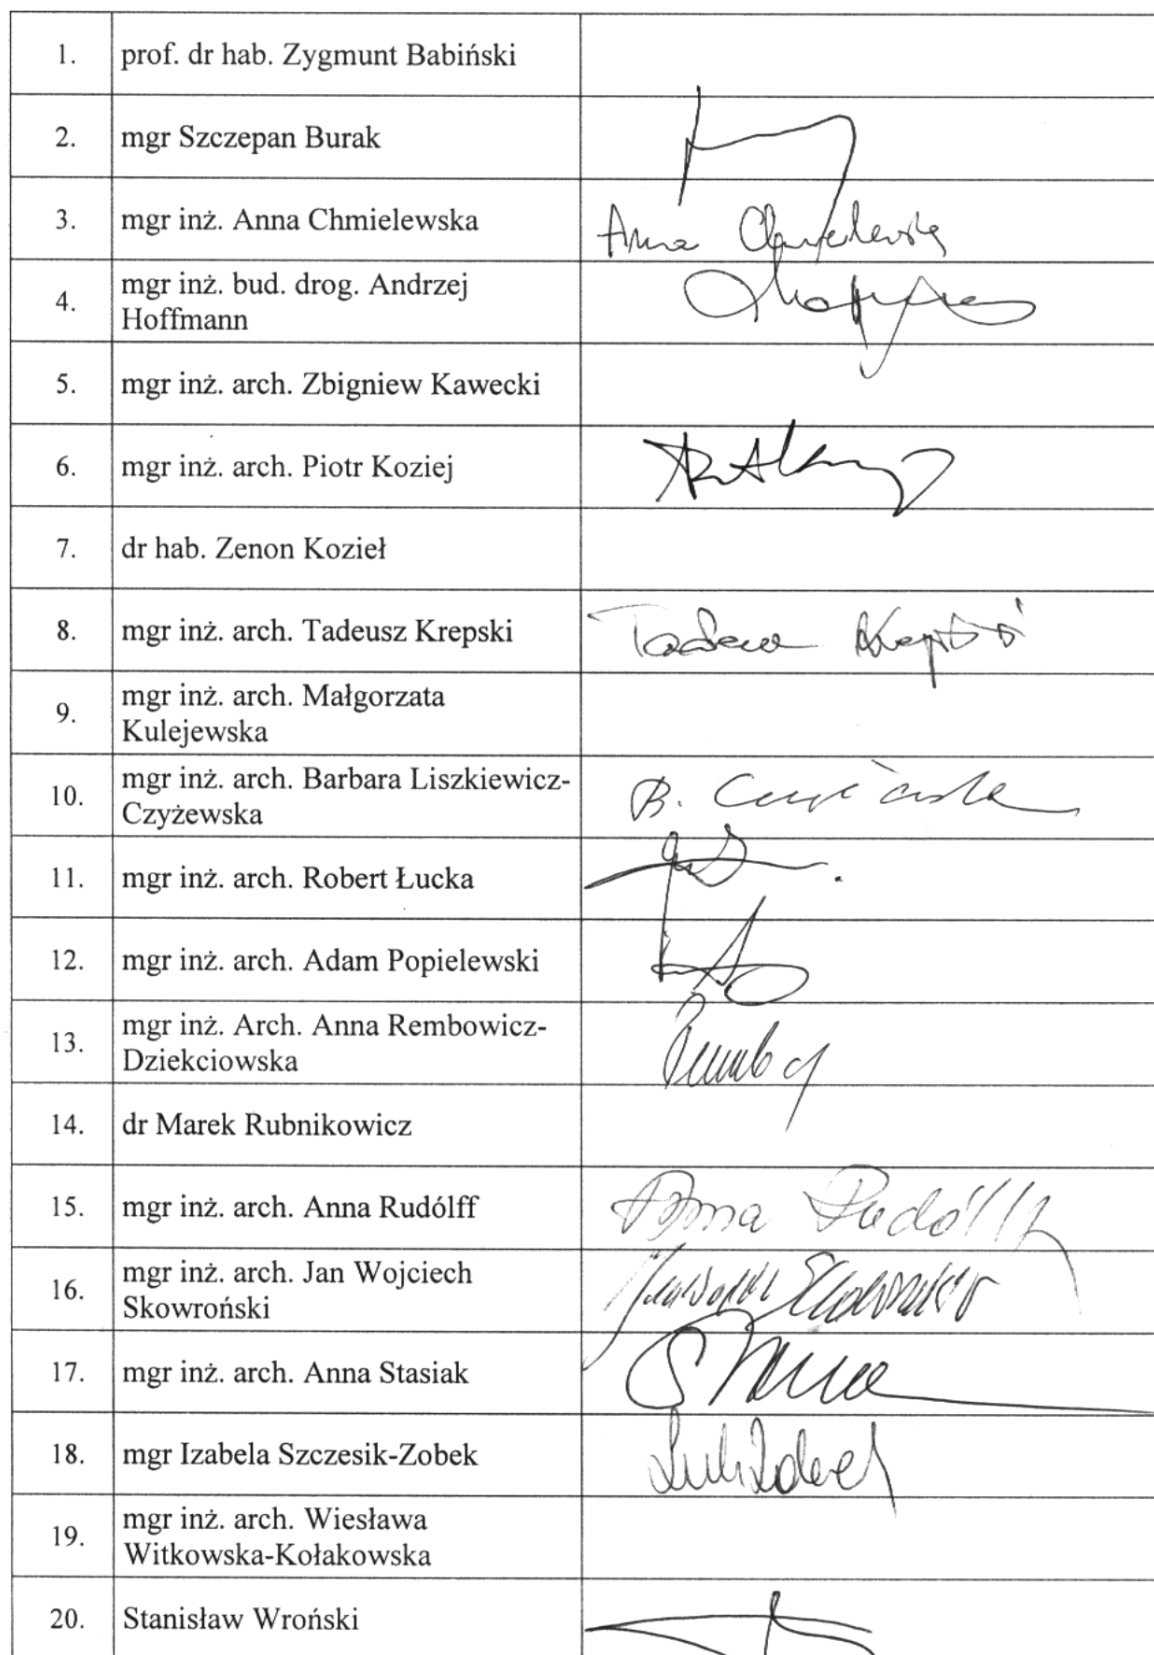 1. prof. dr hab. Zygmunt Babiński
2. mgr Szczepan Burak
3. mgr inż. Anna Chmielewska Anna Chmielewska
4. mgr inż. bud. drog. Andrzej
Hoffmann
5. mgr inż. arch. Zbigniew Kawecki
6. mgr inż. arch. Piotr Koziej
7. dr hab. Zenon Kozieł
8. mgr inż. arch. Tadeusz Krepski Tadeusz Krepski
9. mgr inż. arch. Małgorzata
Kulejewska
10. mgr inż. arch. Barbara Liszkiewicz-
Czyżewska B. Czyżewska
11. mgr inż. arch. Robert Łucka
12. mgr inż. arch. Adam Popielewski
13. mgr inż. Arch. Anna Rembowicz-
Dziekciowska
14. dr Marek Rubnikowicz
15. mgr inż. arch. Anna Rudólff Anna Rudólff
16. mgr inż. arch. Jan Wojciech
Skowroński
17. mgr inż. arch. Anna Stasiak
18. mgr Izabela Szczesik-Zobek
19. mgr inż. arch. Wiesława
Witkowska-Kołakowska
20. Stanisław Wroński